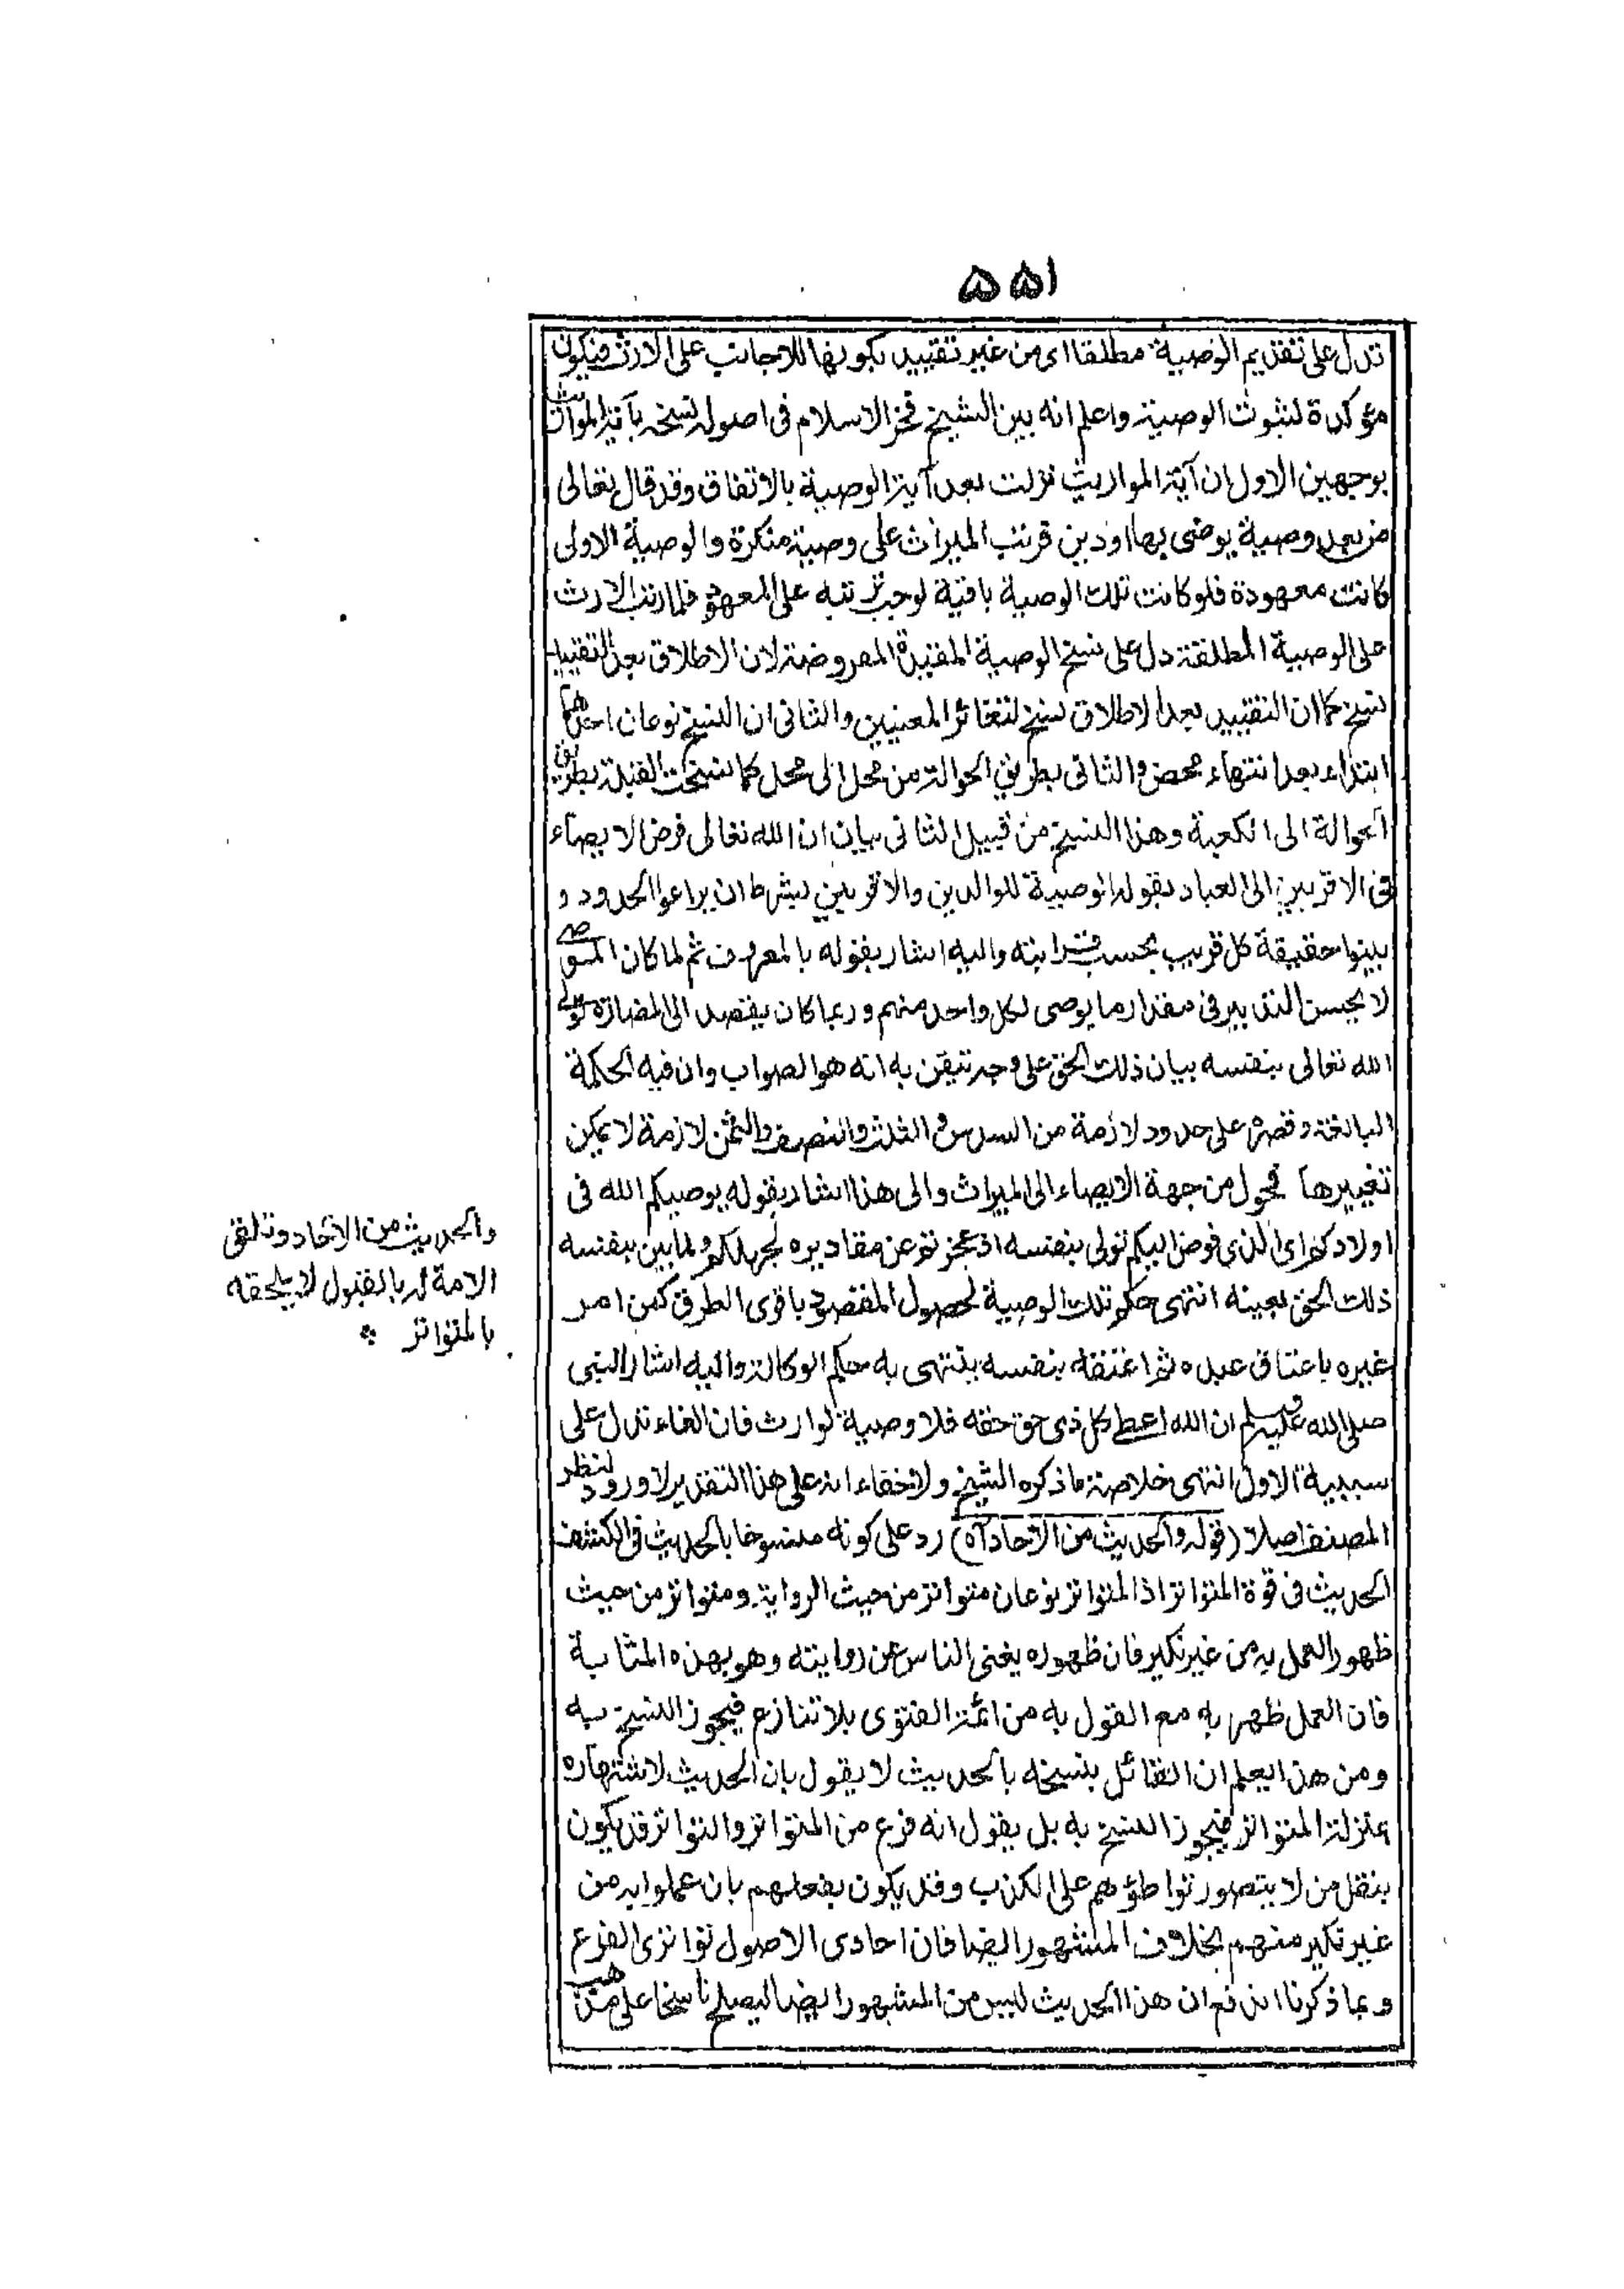 ۵۵۱
تدل على تقديم الوصية مطلقا اى من غير تقييد بكونها للاجانب على الارث فيكون
مؤكدة لثبوت الوصية واعلم انه بين الشيخ فخر الاسلام فى اصوله نسخه بآية المواريث
بوجهين الاول ان آية المواريث نزلت بعد آية الوصية بالاتفاق وقد قال تعالى
من بعد وصية يوصى بها او دين فرتب الميراث على وصية منكرة والوصية الاولى
كانت معهودة فلو كانت تلك الوصية باقية لوجب ترتبه على المعهود فلما رتب الارث
على الوصية المطلقة دل على نسخ الوصية المقيدة المفروضة لان الاطلاق بعد التقييد
نسخ كما ان التقييد بعد الاطلاق نسخ لتغائر المعنيين والثانى ان النسخ نوعان احدهما
ابتداء بعد انتهاء محض والثانى بطريق الحوالة من محل الى محل كما نسخت القبلة بطريق
الحوالة الى الكعبة وهذا النسخ من قبيل الثانى بيان ان الله تعالى فرض الايصاء
فى الاقربين الى العباد بقوله الوصية للوالدين والاقربين بشرط ان يراعوا الحدود و
بينوا حقيقة كل قريب بحسب قرابته واليه اشار بقوله بالمعروف ثم لما كان الموصى
لا يحسن التدبير فى مقدار ما يوصى لكل واحد منهم وربما كان يقصد الى المضارة تولى
الله تعالى بنفسه بيان ذلك الحق على وجه تيقن به انه هو الصواب وان فيه الحكمة
البالغة وقصره على حدود لازمة من السدس والثلث والنصف والثمن لازمة لا يمكن
تغييرها فحول من جهة الايصاء الى الميراث والى هذا اشار بقوله يوصيكم الله فى
اولادكم اى الذى فوض اليكم تولى بنفسه اذ عجزتم عن مقاديره لجهلكم ولما بين بنفسه
ذلك الحق بعينه انتهى حكم تلك الوصية لحصول المقصود باقوى الطرق كمن امر
غيره باعتاق عبده ثم اعتقه بنفسه ينتهى به حكم الوكالة واليه اشار النبى
صلى الله عليه وسلم ان الله اعطى كل ذى حق حقه فلا وصية لوارث فان الفاء تدل على
سببية الاول انتهى خلاصة ما ذكره الشيخ ولا خفاء انه على هذا التقدير لا ورود لنظر
المصنف اصلا (قوله والحديث من الآحاد آه) رد على كونه منسوخا بالحديث فى الكشف
الحديث فى قوة المتواتر اذ المتواتر نوعان متواتر من حيث الرواية ومتواتر من حيث
ظهور العمل به من غير نكير فان ظهوره يغنى الناس عن روايته وهو بهذه المثابة
فان العمل ظهر به مع القول به من ائمة الفتوى بلا تنازع فيجوز النسخ به
ومن هذا يعلم ان القائل بنسخه بالحديث لا يقول بان الحديث لاشتهاره
بمنزلة المتواتر فيجوز النسخ به بل يقول انه فرع من المتواتر والتواتر قد يكون
بنقل من لا يتصور تواطؤهم على الكذب وقد يكون بفعلهم بان عملوا به من
غير نكير منهم بخلاف المشهور ايضا فان احادى الاصول تواترى الفرع
وبما ذكرنا اندفع ان هذا الحديث ليس من المشهور ايضا ليصلح ناسخا على مذهب
والحديث من الآحاد وتلقى
الامة له بالقبول لا يلحقه
بالمتواتر *